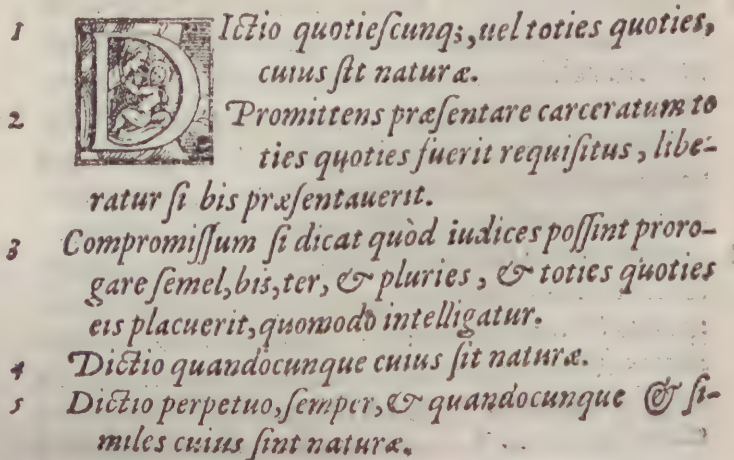 1 DIctio quotieſcunq;, uel toties quoties,
cuius ſit naturæ.
2 Promittens præſentare carceratum to
ties quoties fuerit requiſitus, libe-
ratur ſi bis præſentauerit.
3 Compromiſſum ſi dicat quòd iudices poſſint proro-
gare ſemel, bis, ter, & pluries, & toties quoties
eis placuerit, quomodo intelligatur.
4 Dictio quandocunque cuius ſit naturæ.
5 Dictio perpetuo, ſemper, & quandocunque & ſi-
miles cuius ſint naturæ.